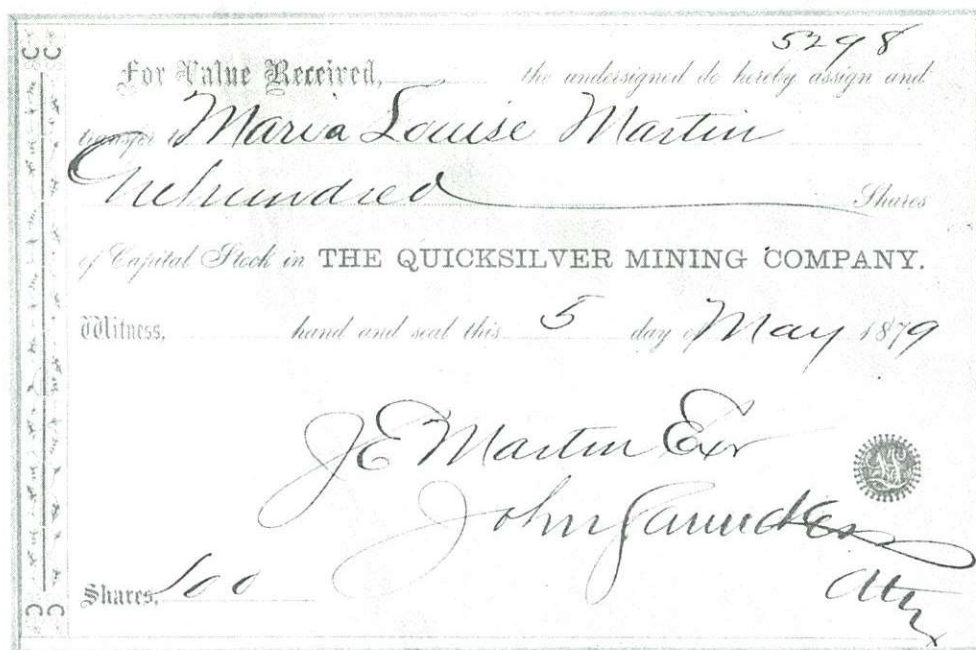 5298
For Value Received, the undersigned do hereby assign and
transfer to Maria Louise Martin
One hundred Shares
of Capital Stock in THE QUICKSILVER MINING COMPANY.
Witness, hand and seal this 5 day of May 1879
J E Martin Exr
John Saunders
Atty
Shares, 100